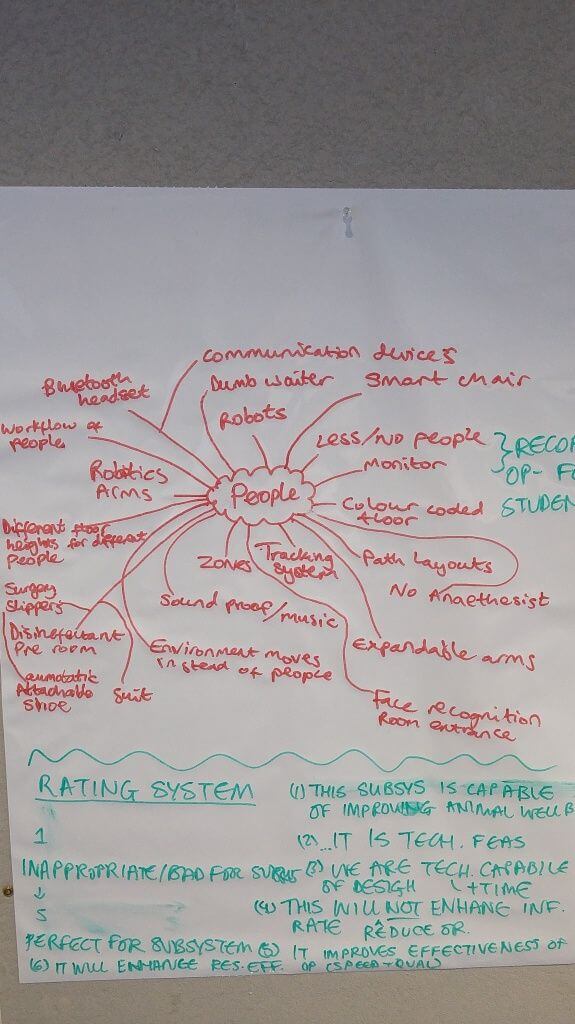 communication devices
Bluetooth
headset
Dumb waiter
Smart chair
Robots
Workflow of
people
Less/No people
} RECOR
OP- FO
STUDEN
Monitor
Robotics
Arms
People
Colour coded
floor
Different floor
heights for different
People
Zones
Tracking
system
Path Layouts
No Anaethesist
Surgery
slippers
Sound proof/music
Disinefectant
Pre room
Environment moves
instead of people
Expandable arms
Attachable
shoe
Suit
Face recognition
Room entrance
RATING SYSTEM
1
INAPPROPRIATE/BAD FOR
↓
5
PERFECT FOR SUBSYSTEM
(1) THIS SUBSYS IS CAPABLE
OF IMPROVING ANIMAL WELL B
(2)... IT IS TECH. FEAS
(3) WE ARE TECH. CAPABILE
OF DESIGH +TIME
(4) THIS WILL NOT ENHANE INF.
RATE REDUCE OR.
(5) IT IMPROVES EFFECTIVENESS OF
(6) IT WILL ENHANCE RES. EFF. OP (SPEED + QUAL)